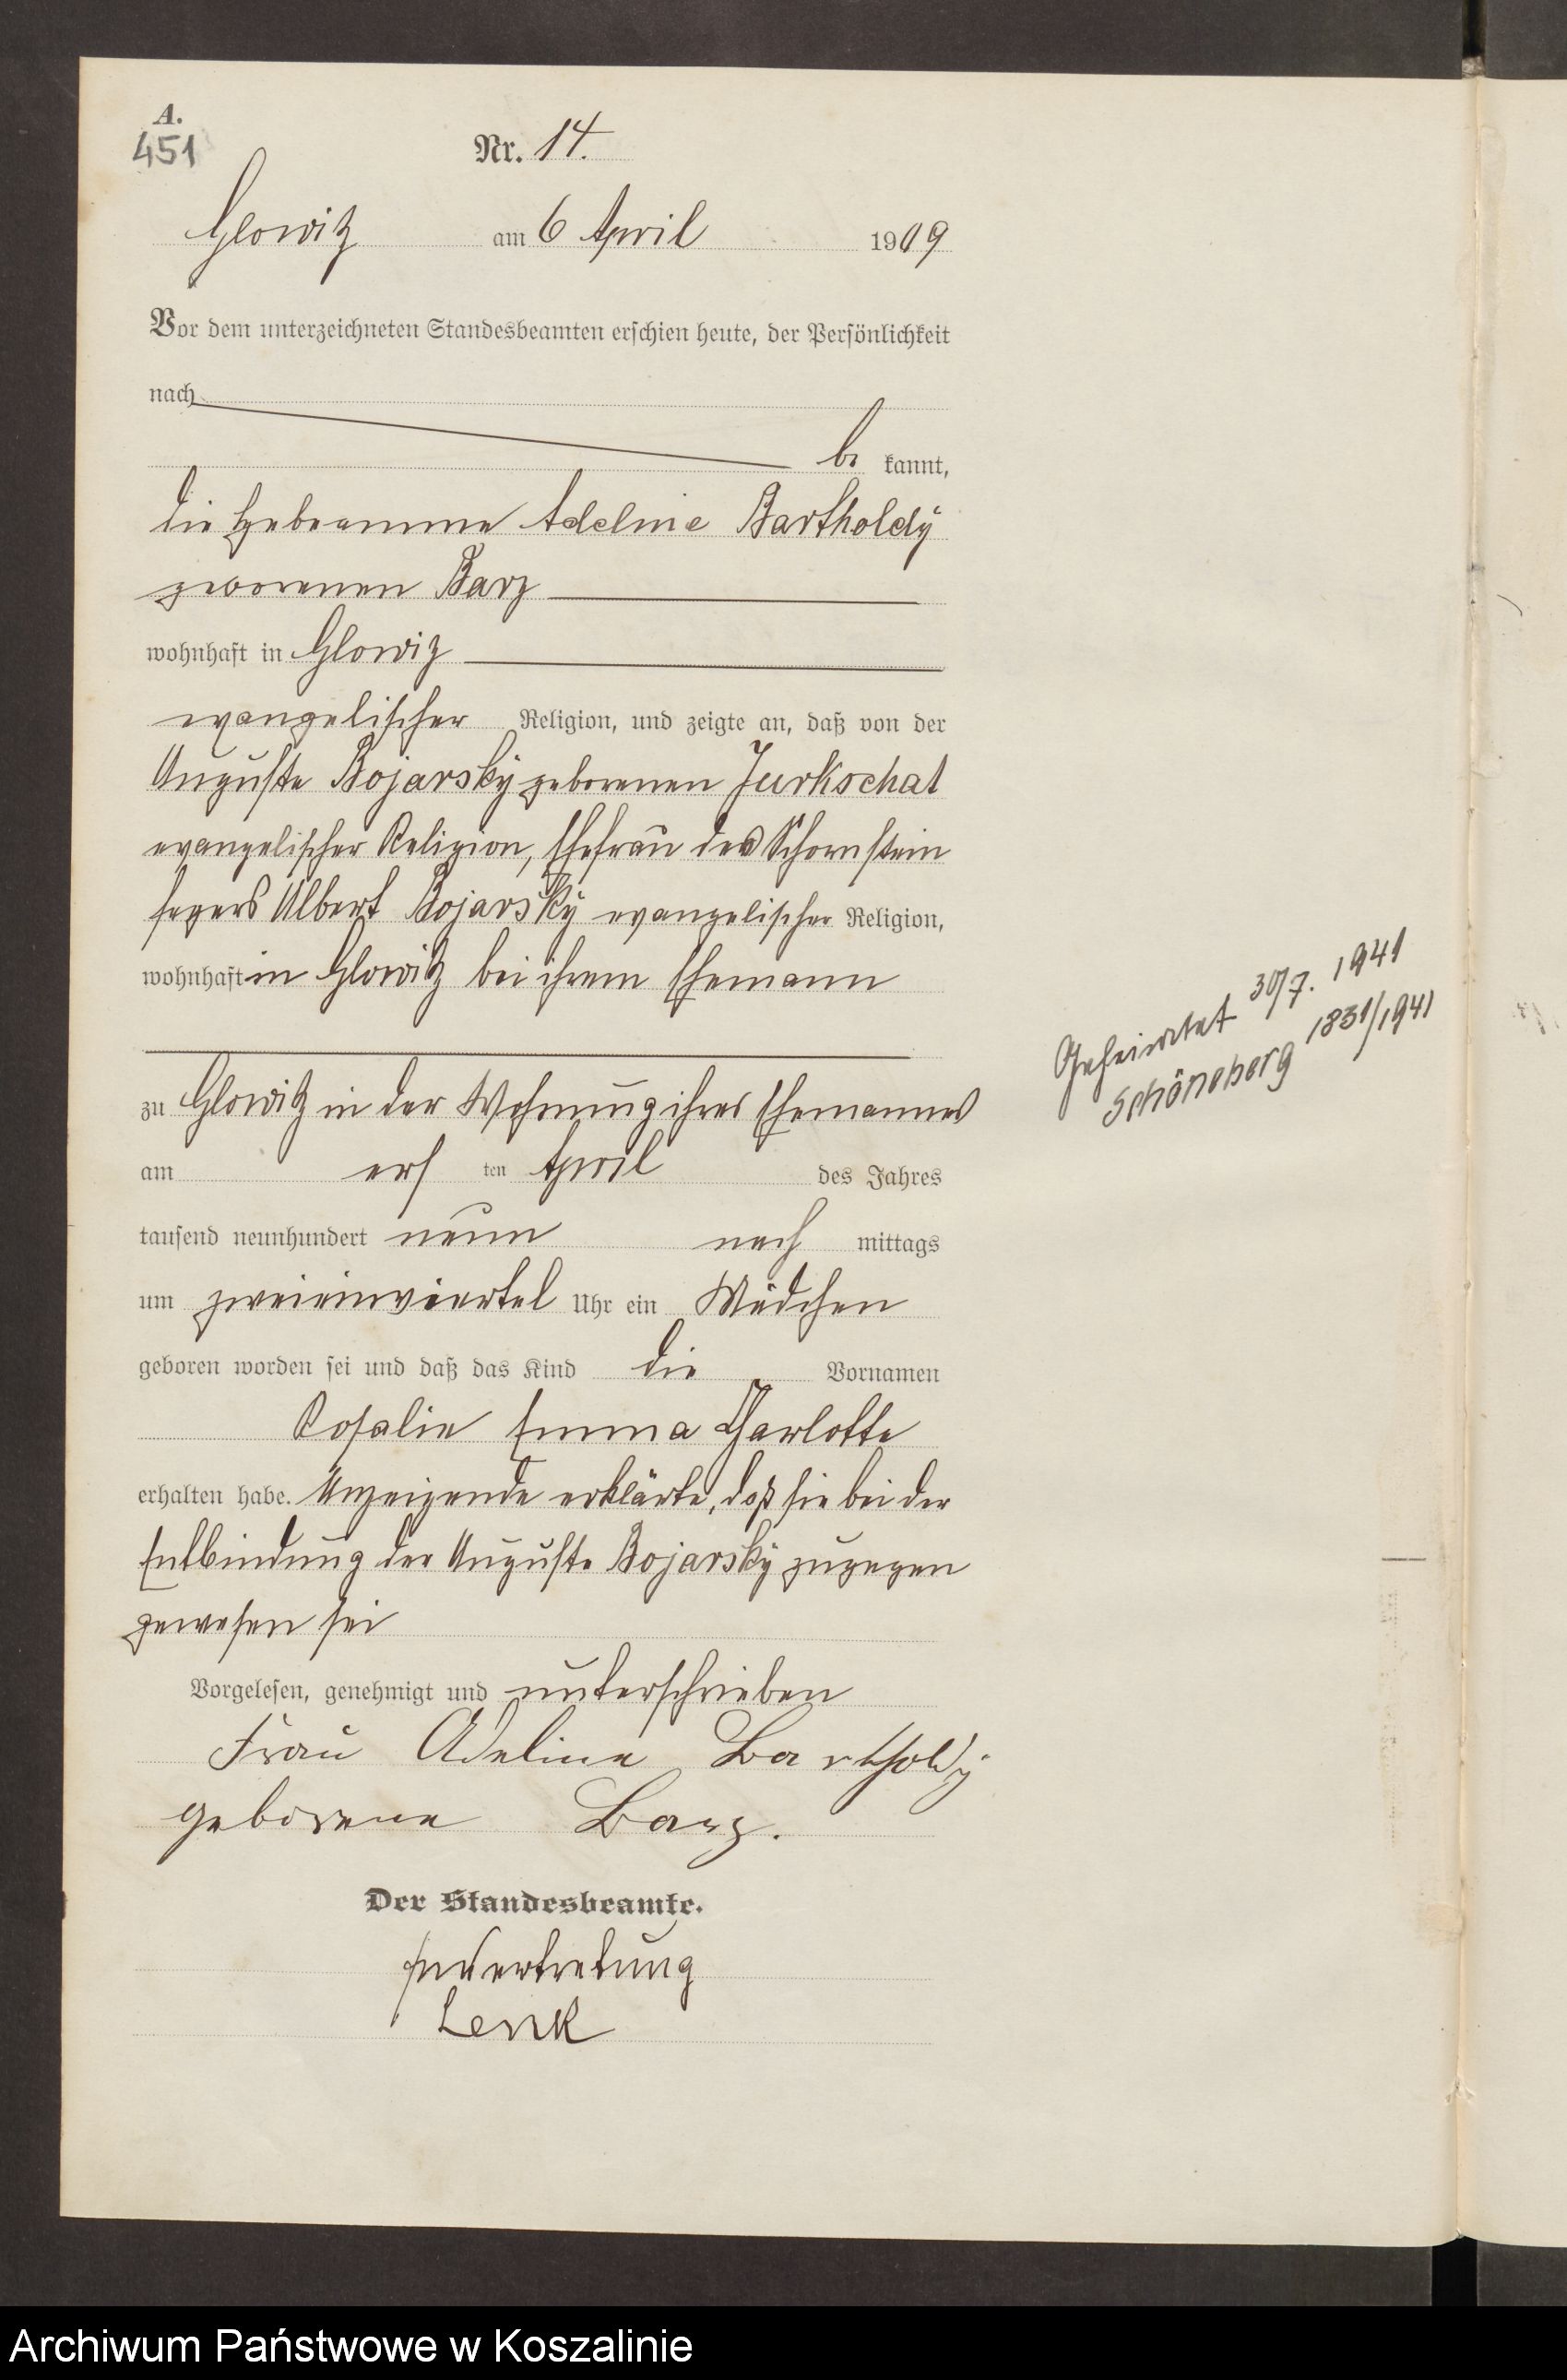 A.
451
Nr. 14.
Glowitz am 6 April 1909
Vor dem unterzeichneten Standesbeamten erschien heute, der Persönlichkeit
nach
be kannt,
die Hebeamme Adeline Bartholdÿ
geborenen Barz
wohnhaft in Glowitz
evangelischer Religion, und zeigte an, daß von der
Auguste Bojarskÿ geborenen Jurkschat
evangelischer Religion, Ehefrau des Schornstein
fegers Albert Bojarskÿ evangelischer Religion,
wohnhaft in Glowitz bei ihrem Ehemann
zu Glowitz in der Wohnung ihres Ehemannes
am ersten April des Jahres
tausend neunhundert neun nach mittags
um zweieinviertel Uhr ein Mädchen
geboren worden sei und daß das Kind die Vornamen
Rosalie Emma Charlotte
erhalten habe. Anzeigende erklärte, daß sie bei der
Entbindung der Auguste Bojarskÿ zugegen
gewesen sei
Vorgelesen, genehmigt und unterschrieben
Frau Adeline Bartholdy
geborene Barz.
Der Standesbeamte.
In Vertretung
Lenk
Geheiratet 30/7. 1941
Schöneberg 1831/1941
Archiwum Państwowe w Koszalinie